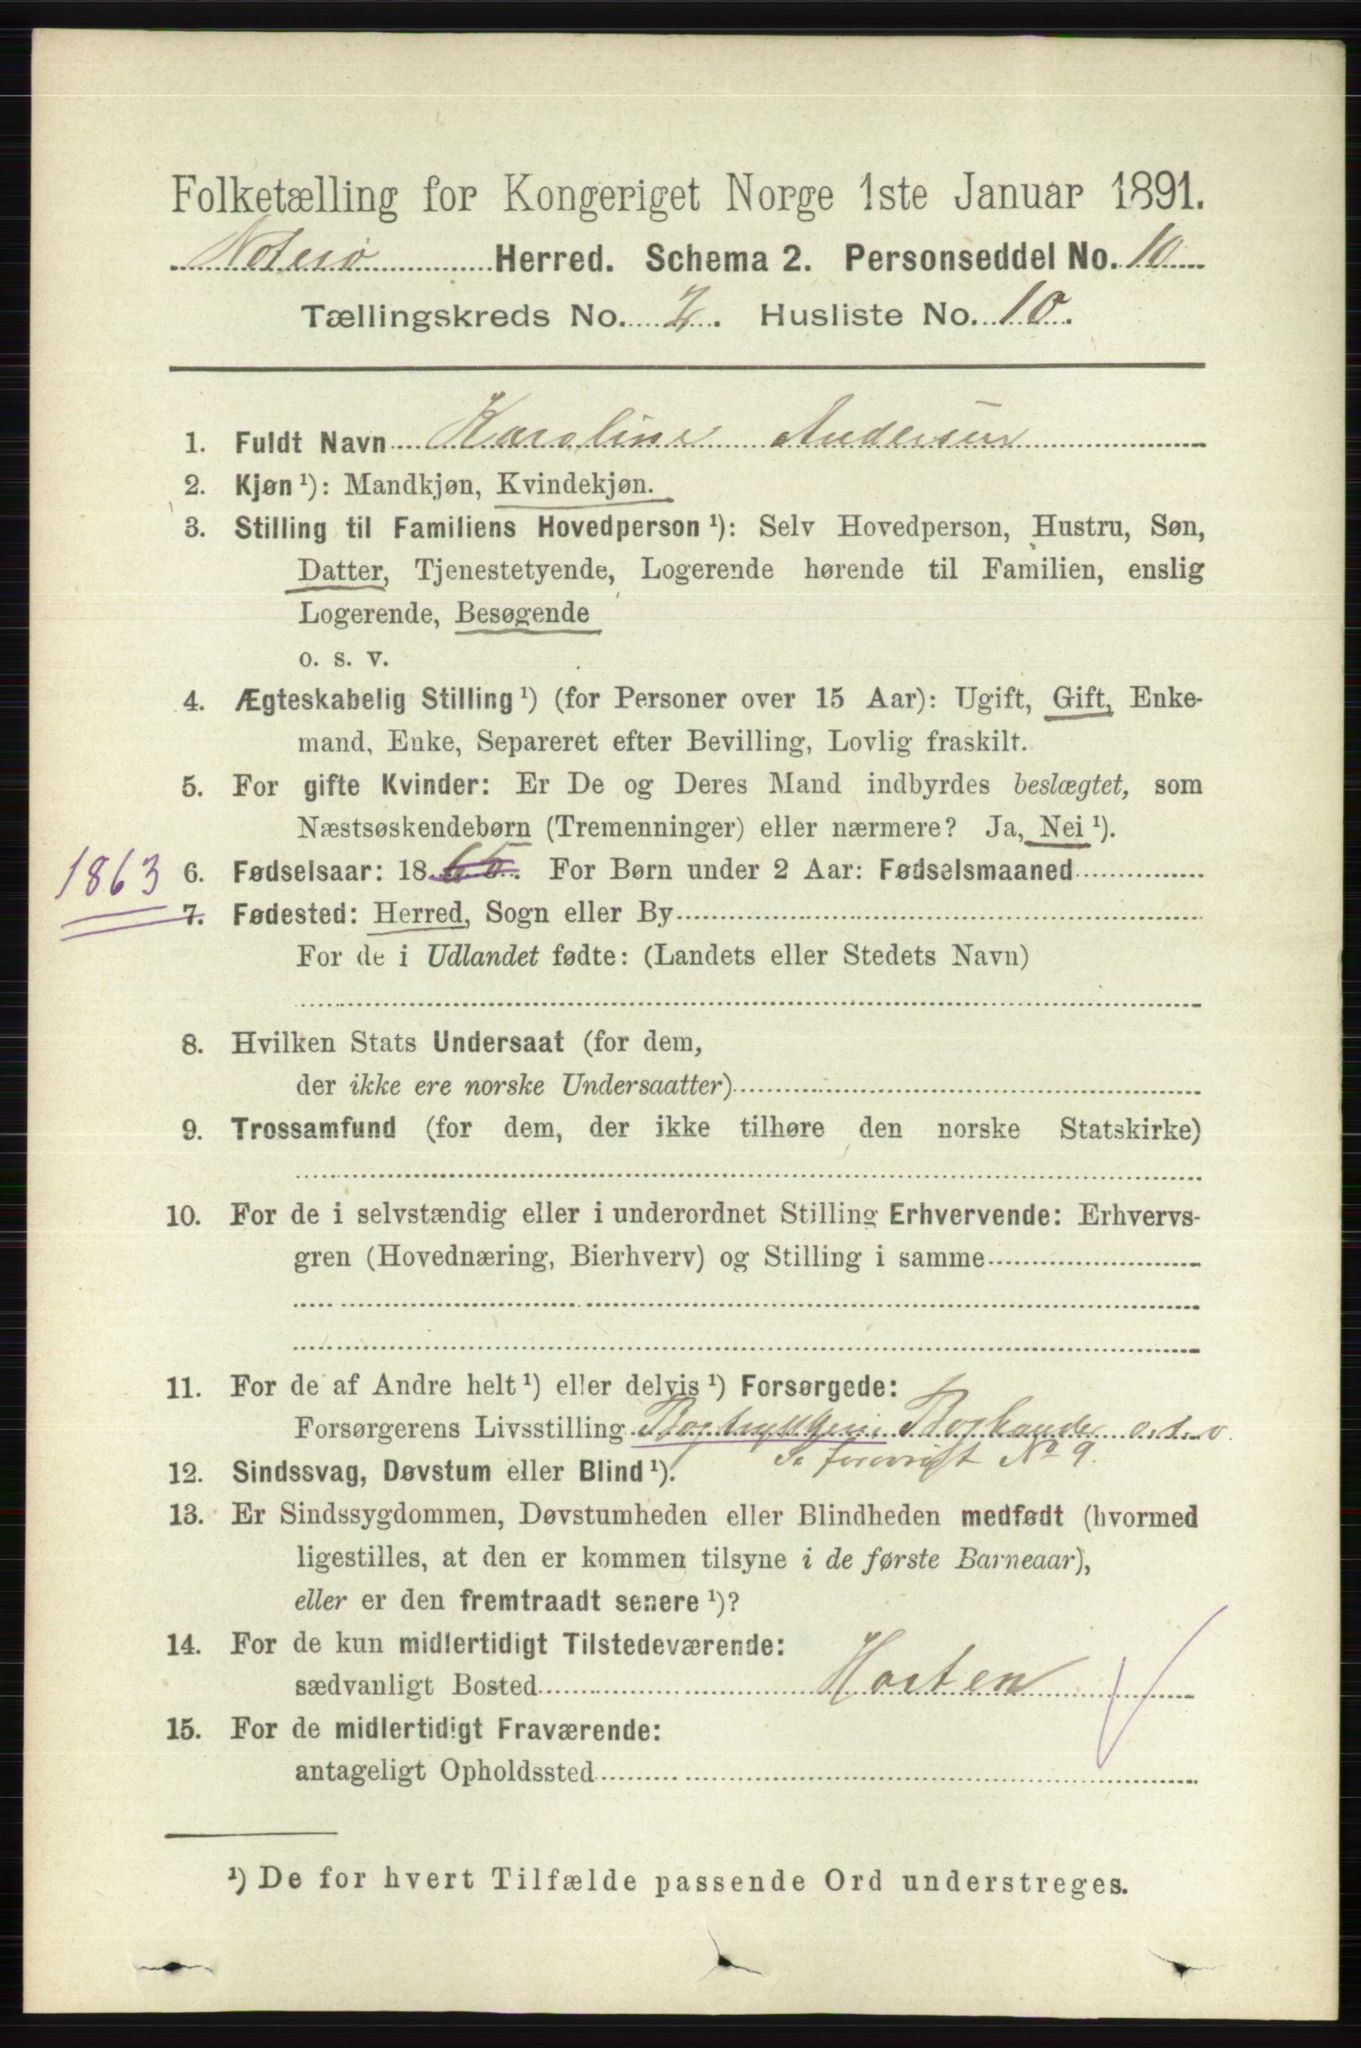 Folketælling for Kongeriget Norge 1ste Januar 1891.
Noterø Herred. Schema 2. Personseddel No. 10
Tællingskreds No. 2. Husliste No. 10.
1. Fuldt Navn Karoline Andersen
2. Kjøn ¹): Mandkjøn, Kvindekjøn.
3. Stilling til Familiens Hovedperson ¹): Selv Hovedperson, Hustru, Søn,
Datter, Tjenestetyende, Logerende hørende til Familien, enslig
Logerende, Besøgende
o. s. v.
4. Ægteskabelig Stilling ¹) (for Personer over 15 Aar): Ugift, Gift, Enke-
mand, Enke, Separeret efter Bevilling, Lovlig fraskilt.
5. For gifte Kvinder: Er De og Deres Mand indbyrdes beslægtet, som
Næstsøskendebørn (Tremenninger) eller nærmere? Ja, Nei ¹).
1863 6. Fødselsaar: 1865. For Børn under 2 Aar: Fødselsmaaned
7. Fødested: Herred, Sogn eller By
For de i Udlandet fødte: (Landets eller Stedets Navn)
8. Hvilken Stats Undersaat (for dem,
der ikke ere norske Undersaatter)
9. Trossamfund (for dem, der ikke tilhøre den norske Statskirke)
10. For de i selvstændig eller i underordnet Stilling Erhvervende: Erhvervs-
gren (Hovednæring, Bierhverv) og Stilling i samme
11. For de af Andre helt ¹) eller delvis ¹) Forsørgede:
Forsørgerens Livsstilling Bogtrykkeri Boghandel o.s.v.
Se forøvrigt No 9.
12. Sindssvag, Døvstum eller Blind ¹).
13. Er Sindssygdommen, Døvstumheden eller Blindheden medfødt (hvormed
ligestilles, at den er kommen tilsyne i de første Barneaar),
eller er den fremtraadt senere ¹)?
14. For de kun midlertidigt Tilstedeværende:
sædvanligt Bosted Horten
15. For de midlertidigt Fraværende:
antageligt Opholdssted
¹) De for hvert Tilfælde passende Ord understreges.